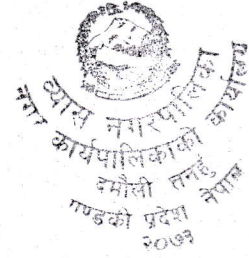 व्यास नगरपालिका
नगर कार्यपालिकाको कार्यालय
दमौली तनहुँ,
गण्डकी प्रदेश नेपाल
२०७३